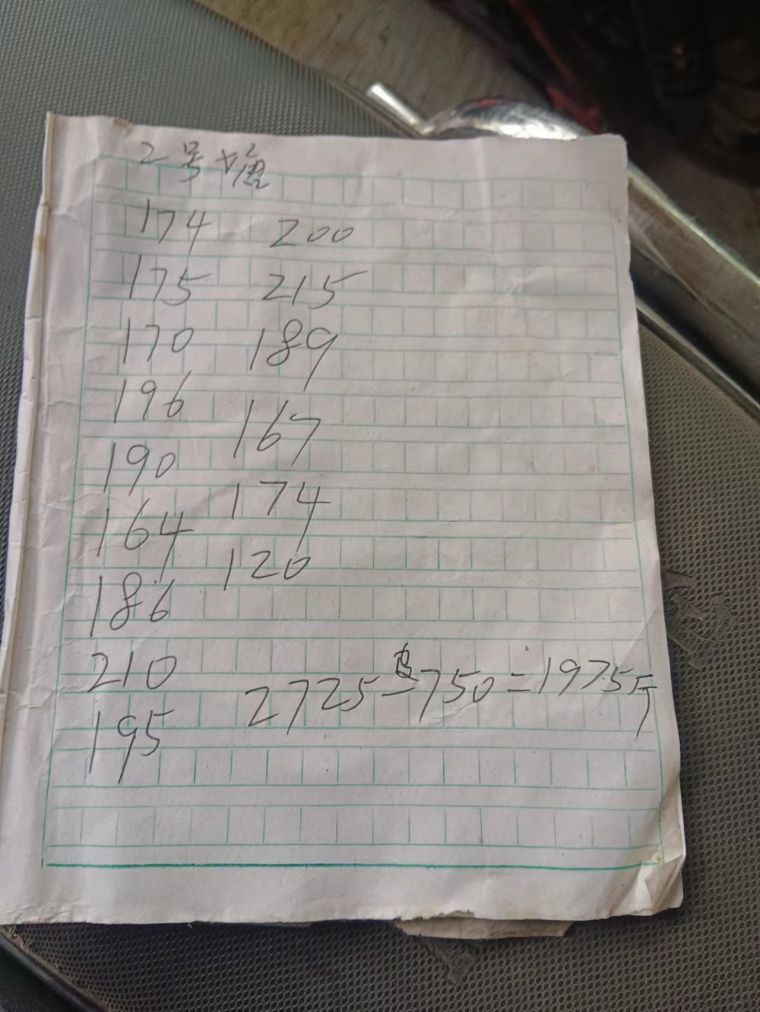 2号塘
174 200
175 215
170 189
196 167
190 174
164 120
186
210
195
2725-750=1975斤